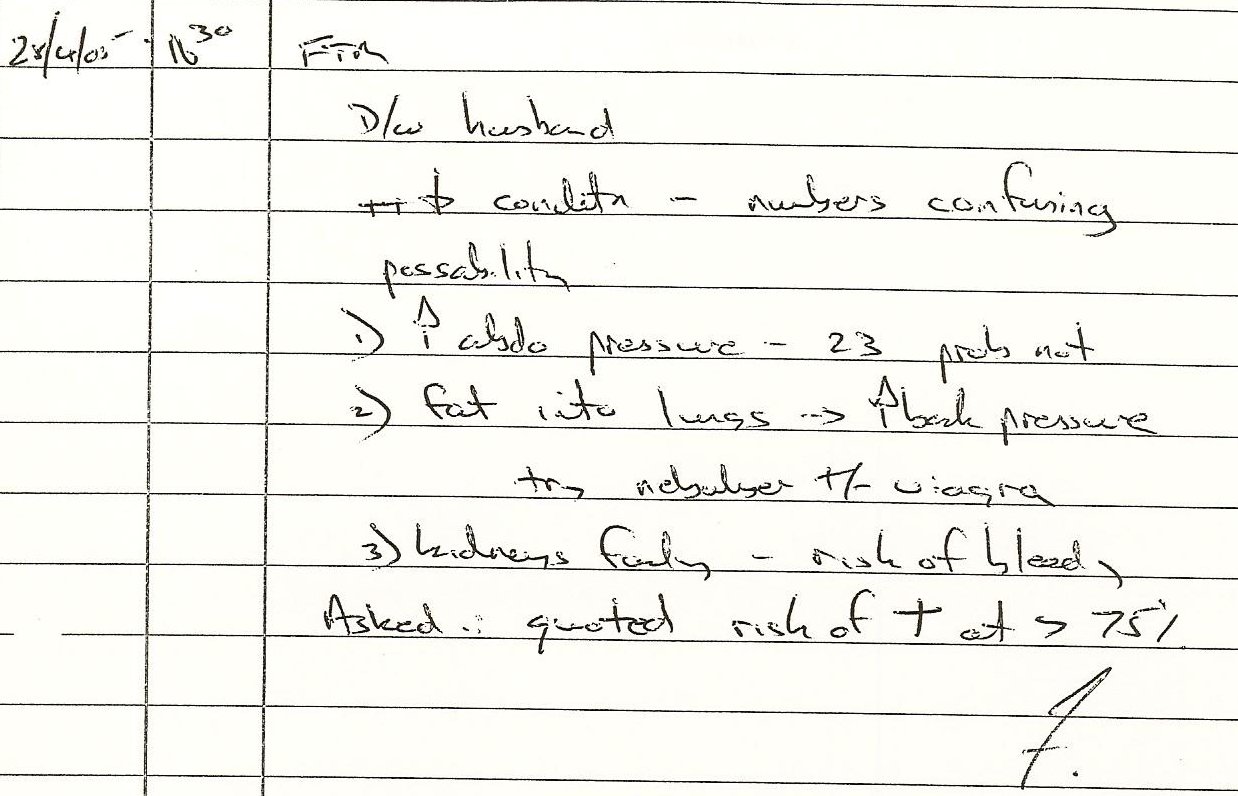 28/4/05 16³⁰
D/w husband
↓ conditn - numbers confusing
possability
1) ↑ abdo pressure - 23 prob not
2) fat into lungs → ↑ back pressure
try nebuliser +/- viagra
3) kidneys faily - risk of bleed,
Asked: quoted risk of † at > 75%